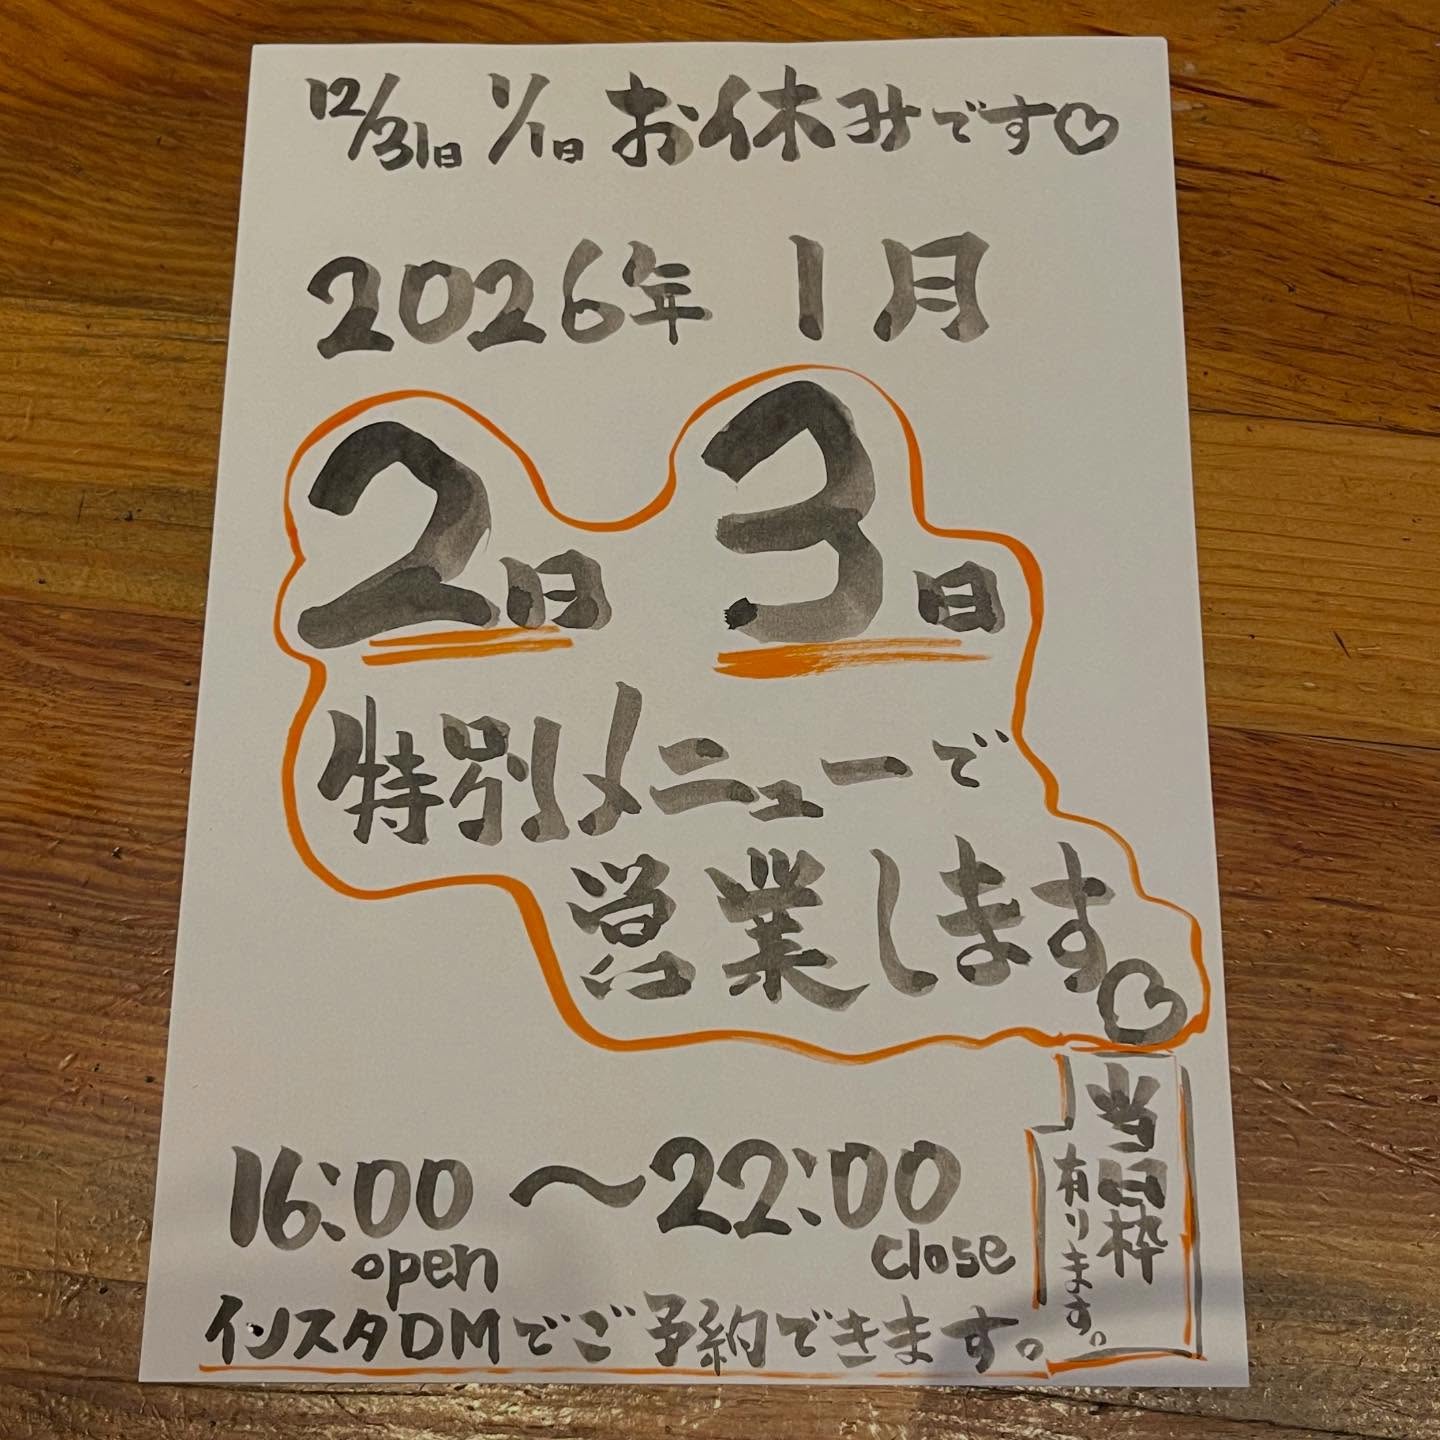 12/31日 1/1日 お休みです♡
2026年 1月
2日 3日
特別メニューで
営業します♡
16:00 〜 22:00
open close
インスタDMでご予約できます。
当日枠
有ります。